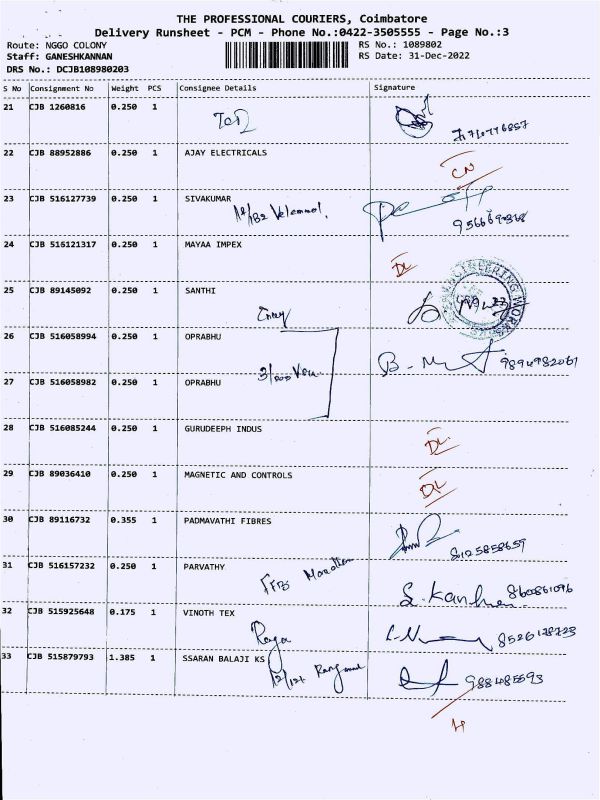 THE PROFESSIONAL COURIERS, Coimbatore
Delivery Runsheet - PCM - Phone No.:0422-3505555 - Page No.:3
Route: NGGO COLONY
RS No.: 1089802
Staff: GANESHKANNAN
RS Date: 31-Dec-2022
DRS No.: DCJB108980203
S No Consignment No Weight PCS Consignee Details Signature
21 CJB 1260816 0.250 1
22 CJB 88952886 0.250 1 AJAY ELECTRICALS
CN
23 CJB 516127739 0.250 1 SIVAKUMAR
24 CJB 516121317 0.250 1 MAYAA IMPEX
DL
25 CJB 89145092 0.250 1 SANTHI
ENGINEERING WORKS
26 CJB 516058994 0.250 1 OPRABHU
9894982067
27 CJB 516058982 0.250 1 OPRABHU
28 CJB 516085244 0.250 1 GURUDEEPH INDUS
DL
29 CJB 89036410 0.250 1 MAGNETIC AND CONTROLS
DL
30 CJB 89116732 0.355 1 PADMAVATHI FIBRES
8125858659
31 CJB 516157232 0.250 1 PARVATHY
860861096
32 CJB 515925648 0.175 1 VINOTH TEX
Raja
8526128723
33 CJB 515879793 1.385 1 SSARAN BALAJI KS